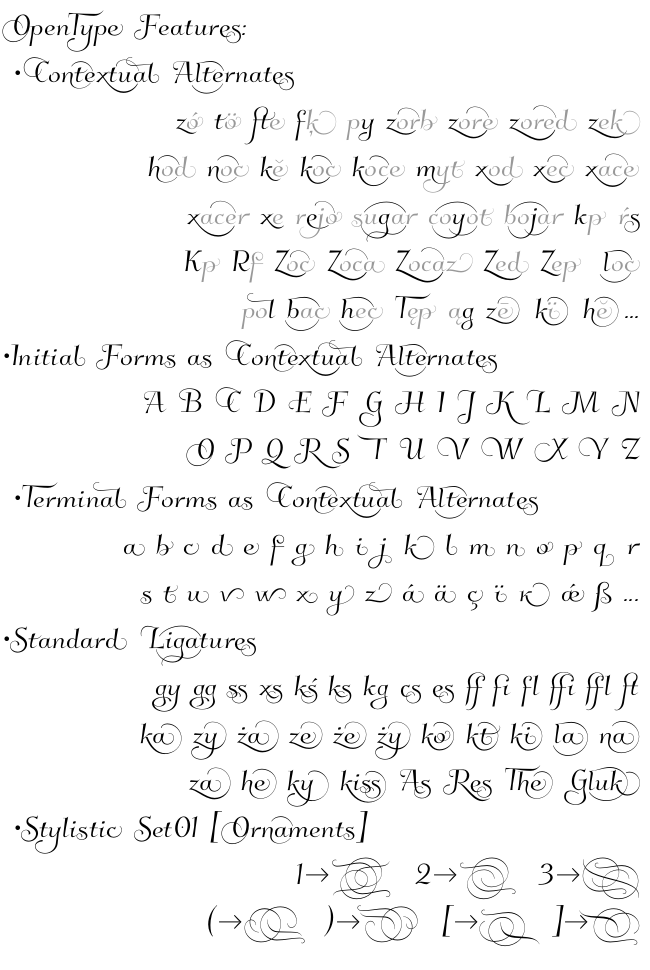 OpenType Features:
•Contextual Alternates
zó tö fte fķ py zorb zore zored zek
hod noc kě koc koce myt xod xec xace
xacer xe rejo sugar coyot bojar kp ŕs
Kp Rf Zoc Zoca Zocaz Zed Zep loc
pol bac hec Tęp ag zē kï hě ...
•Initial Forms as Contextual Alternates
A B C D E F G H I J K L M N
O P Q R S T U V W X Y Z
•Terminal Forms as Contextual Alternates
a b c d e f g h i j k l m n o p q r
s t u v w x y z á ä ç ï ĸ ǽ ß ...
•Standard Ligatures
gy gg ss xs kś ks kg cs es ff fi fl ffi ffl ft
ka zy ża ze że ży ko kt ki la na
za he ky kiss As Res The Gluk
•Stylistic Set01 [Ornaments]
1→ 2→ 3→
(→ )→ [→ ]→